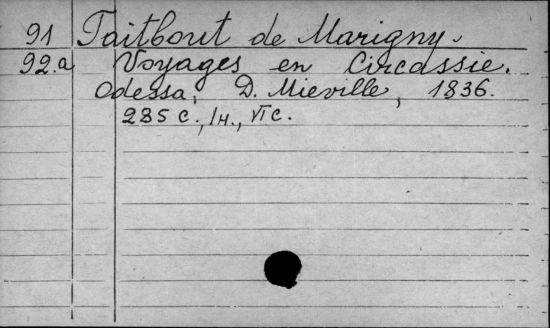 91 Taitbout de Marigny.
92.a Voyages en Circassie.
Odessa, D. Mieville, 1836.
285 с., 1 н., VI с.